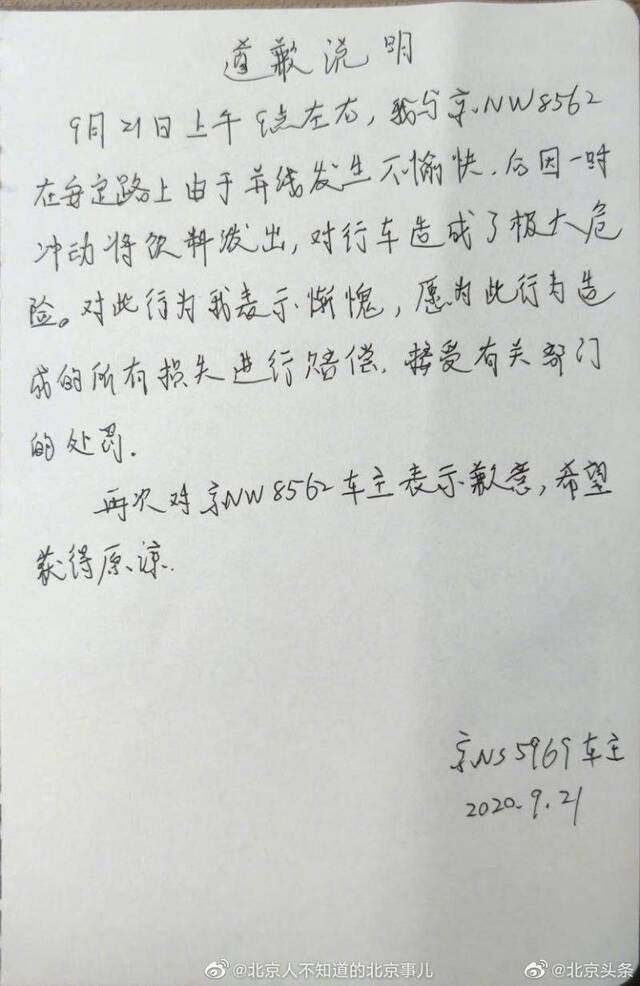 道歉说明
9月21日上午9点左右，我与京NW8562
在安定路上由于并线发生不愉快，后因一时
冲动将饮料泼出，对行车造成了极大危
险。对此行为我表示惭愧，愿为此行为造
成的所有损失进行赔偿，接受有关部门
的处罚.
再次对京NW8562车主表示歉意，希望
获得原谅.
京NS5969车主
2020.9.21
@北京人不知道的北京事儿
@北京头条